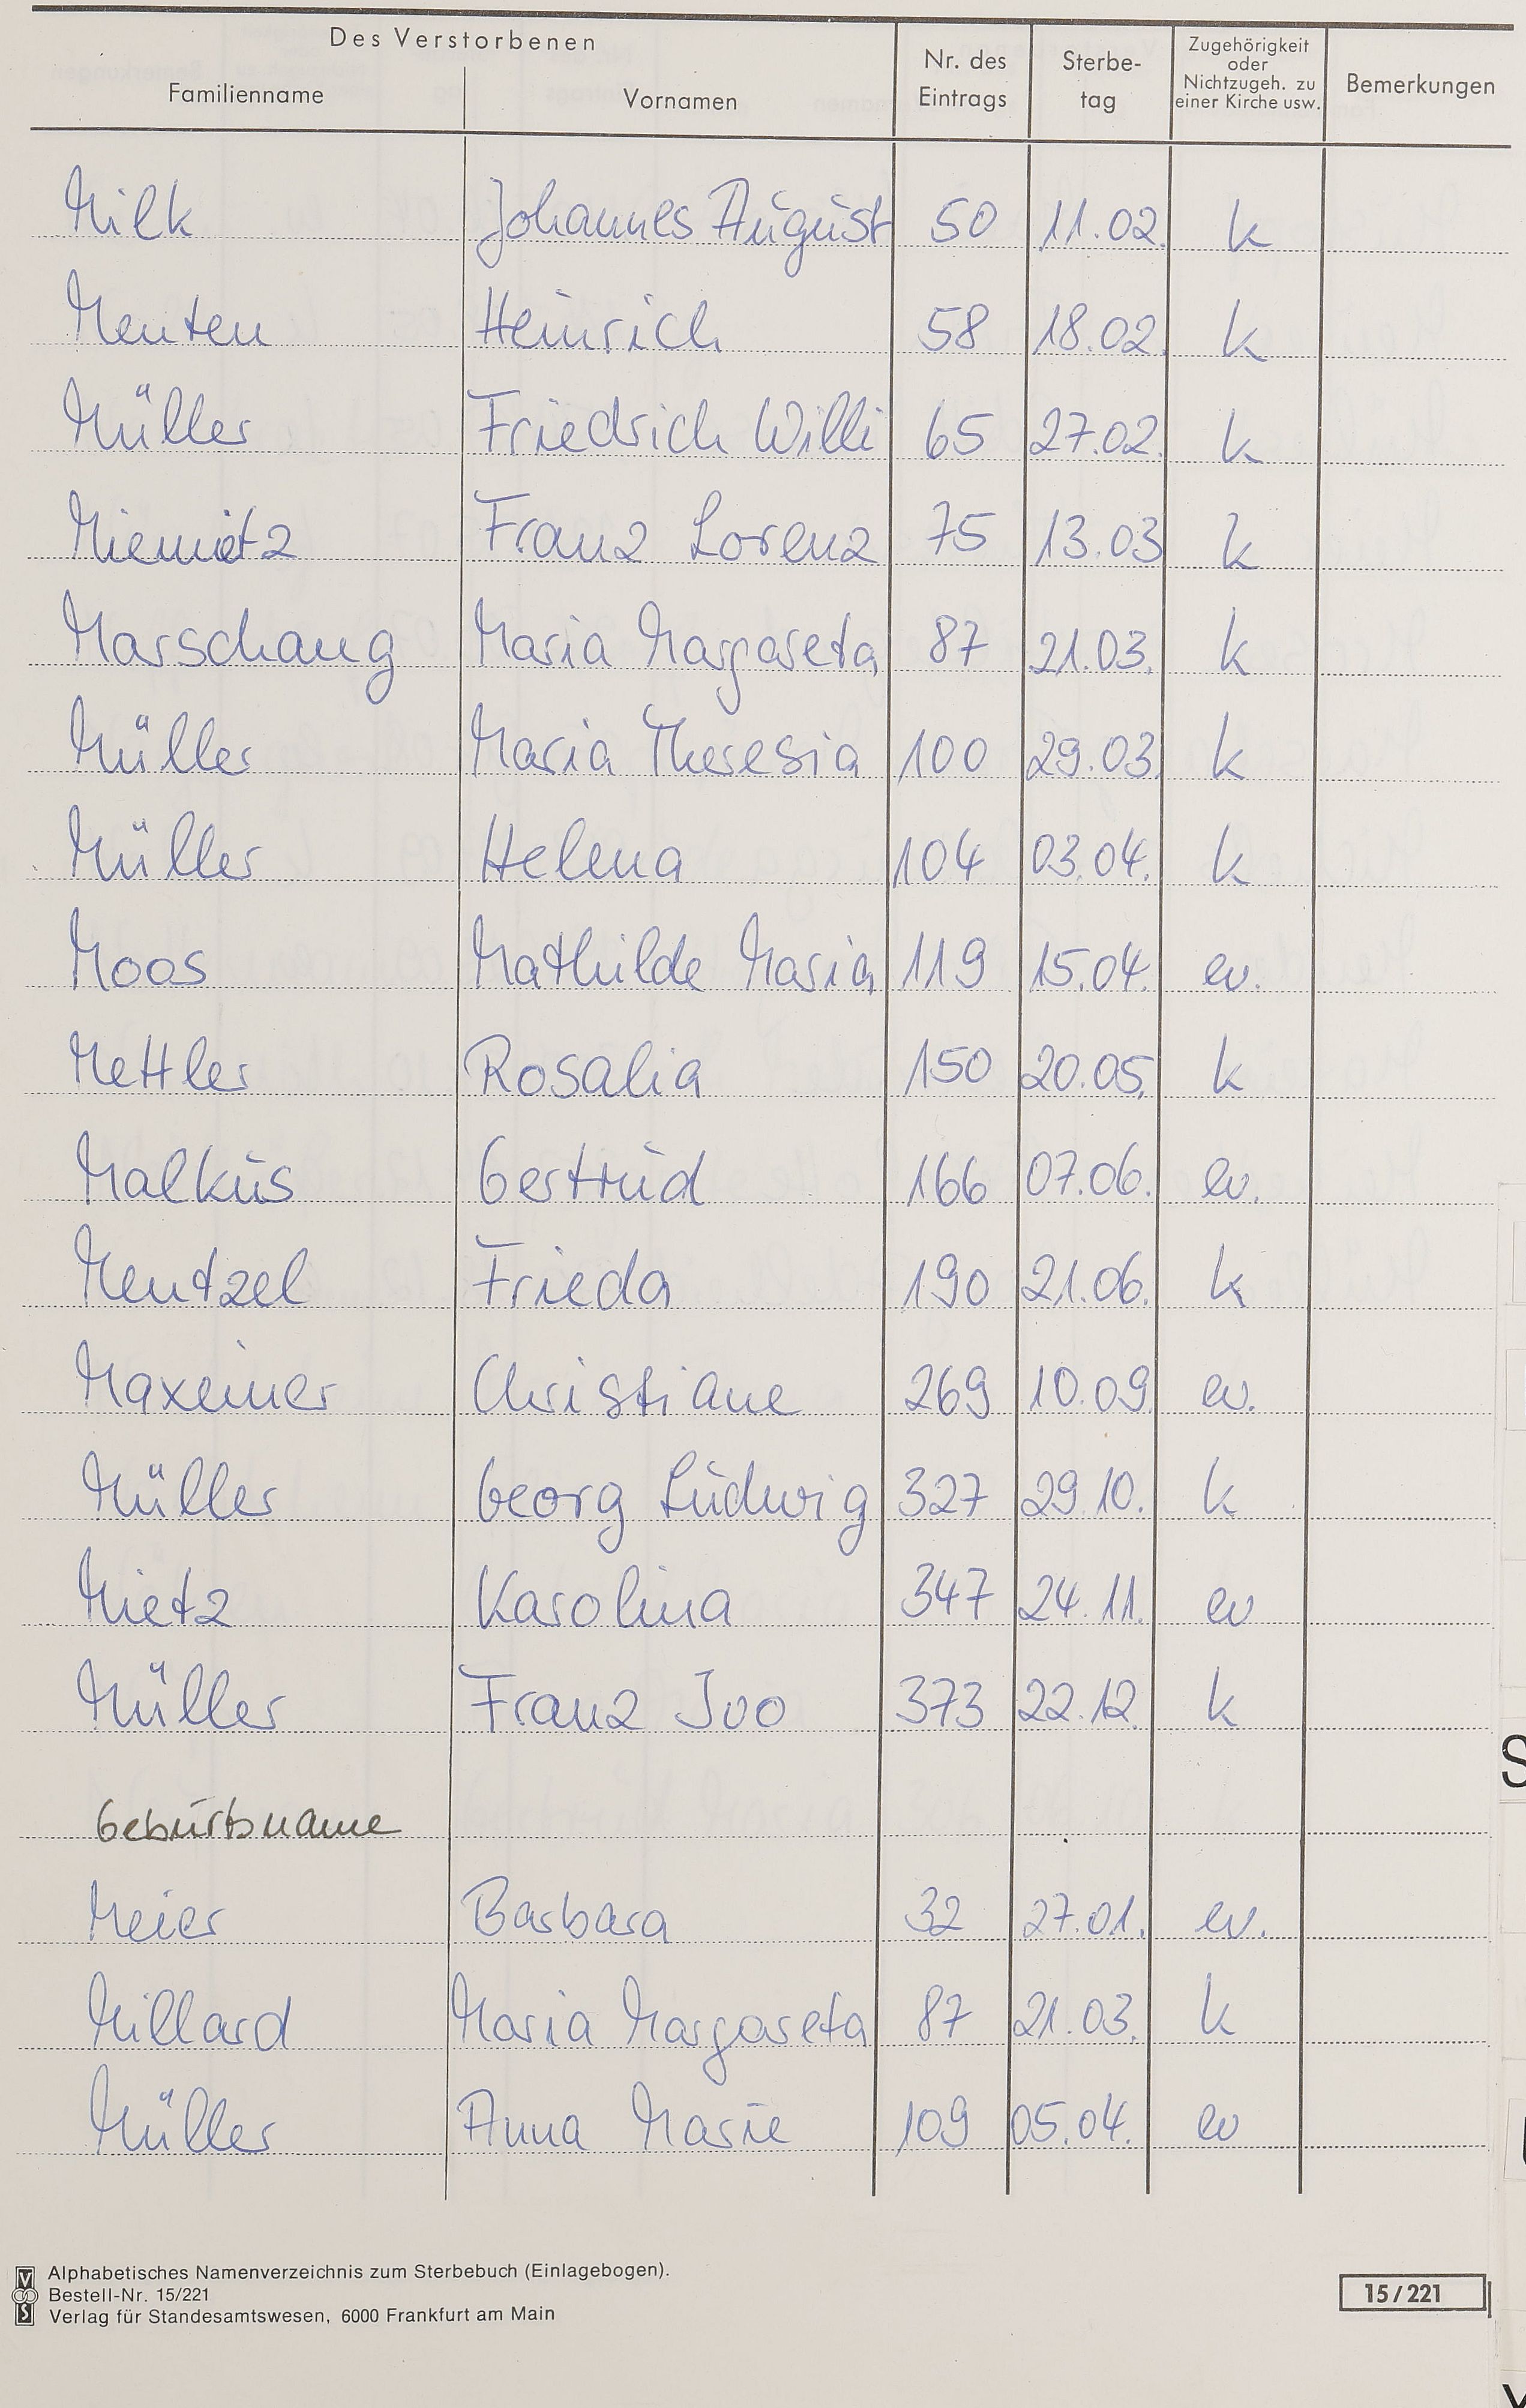 Des Verstorbenen
Familienname Vornamen Nr. des Eintrags Sterbe-tag Zugehörigkeit oder Nichtzugeh. zu einer Kirche usw. Bemerkungen
Milk Johannes August 50 11.02. k
Menten Heinrich 58 18.02. k
Müller Friedrich Willi 65 27.02. k
Miemitz Franz Lorenz 75 13.03 k
Marschang Maria Margareta 87 21.03. k
Müller Maria Theresia 100 29.03. k
Müller Helena 104 03.04. k
Moos Mathilde Maria 119 15.04. ev.
Mettler Rosalia 150 20.05. k
Malkus Gertrud 166 07.06. ev.
Mentzel Frieda 190 21.06. k
Maxeiner Christiane 269 10.09. ev.
Müller Georg Ludwig 327 29.10. k
Mietz Karolina 347 24.11. ev
Müller Franz Ivo 373 22.12. k
Geburtsname
Meier Barbara 32 27.01. ev.
Millard Maria Margareta 87 21.03. k
Müller Anna Marie 109 05.04. ev
Alphabetisches Namenverzeichnis zum Sterbebuch (Einlagebogen).
Bestell-Nr. 15/221
Verlag für Standesamtswesen, 6000 Frankfurt am Main
15/221